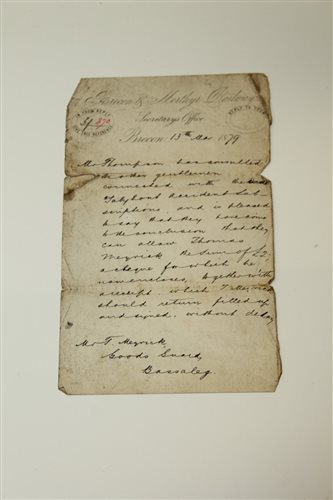 Brecon & Merthyr Railway
Secretarys Office
Brecon 13th Mar 1879
Mr Thompson has consulted
the other gentlemen
connected with the
Talybont Accident Sub
scriptions, and is pleased
to say that they have come
to the conclusion that they
can allow Thomas
Meyrick the sum of £2,
a cheque for which he
now encloses, together with
a receipt which T Meyrick
should return filled up
and signed, without delay
Mr T. Meyrick,
Goods Guard,
Bassaleg.